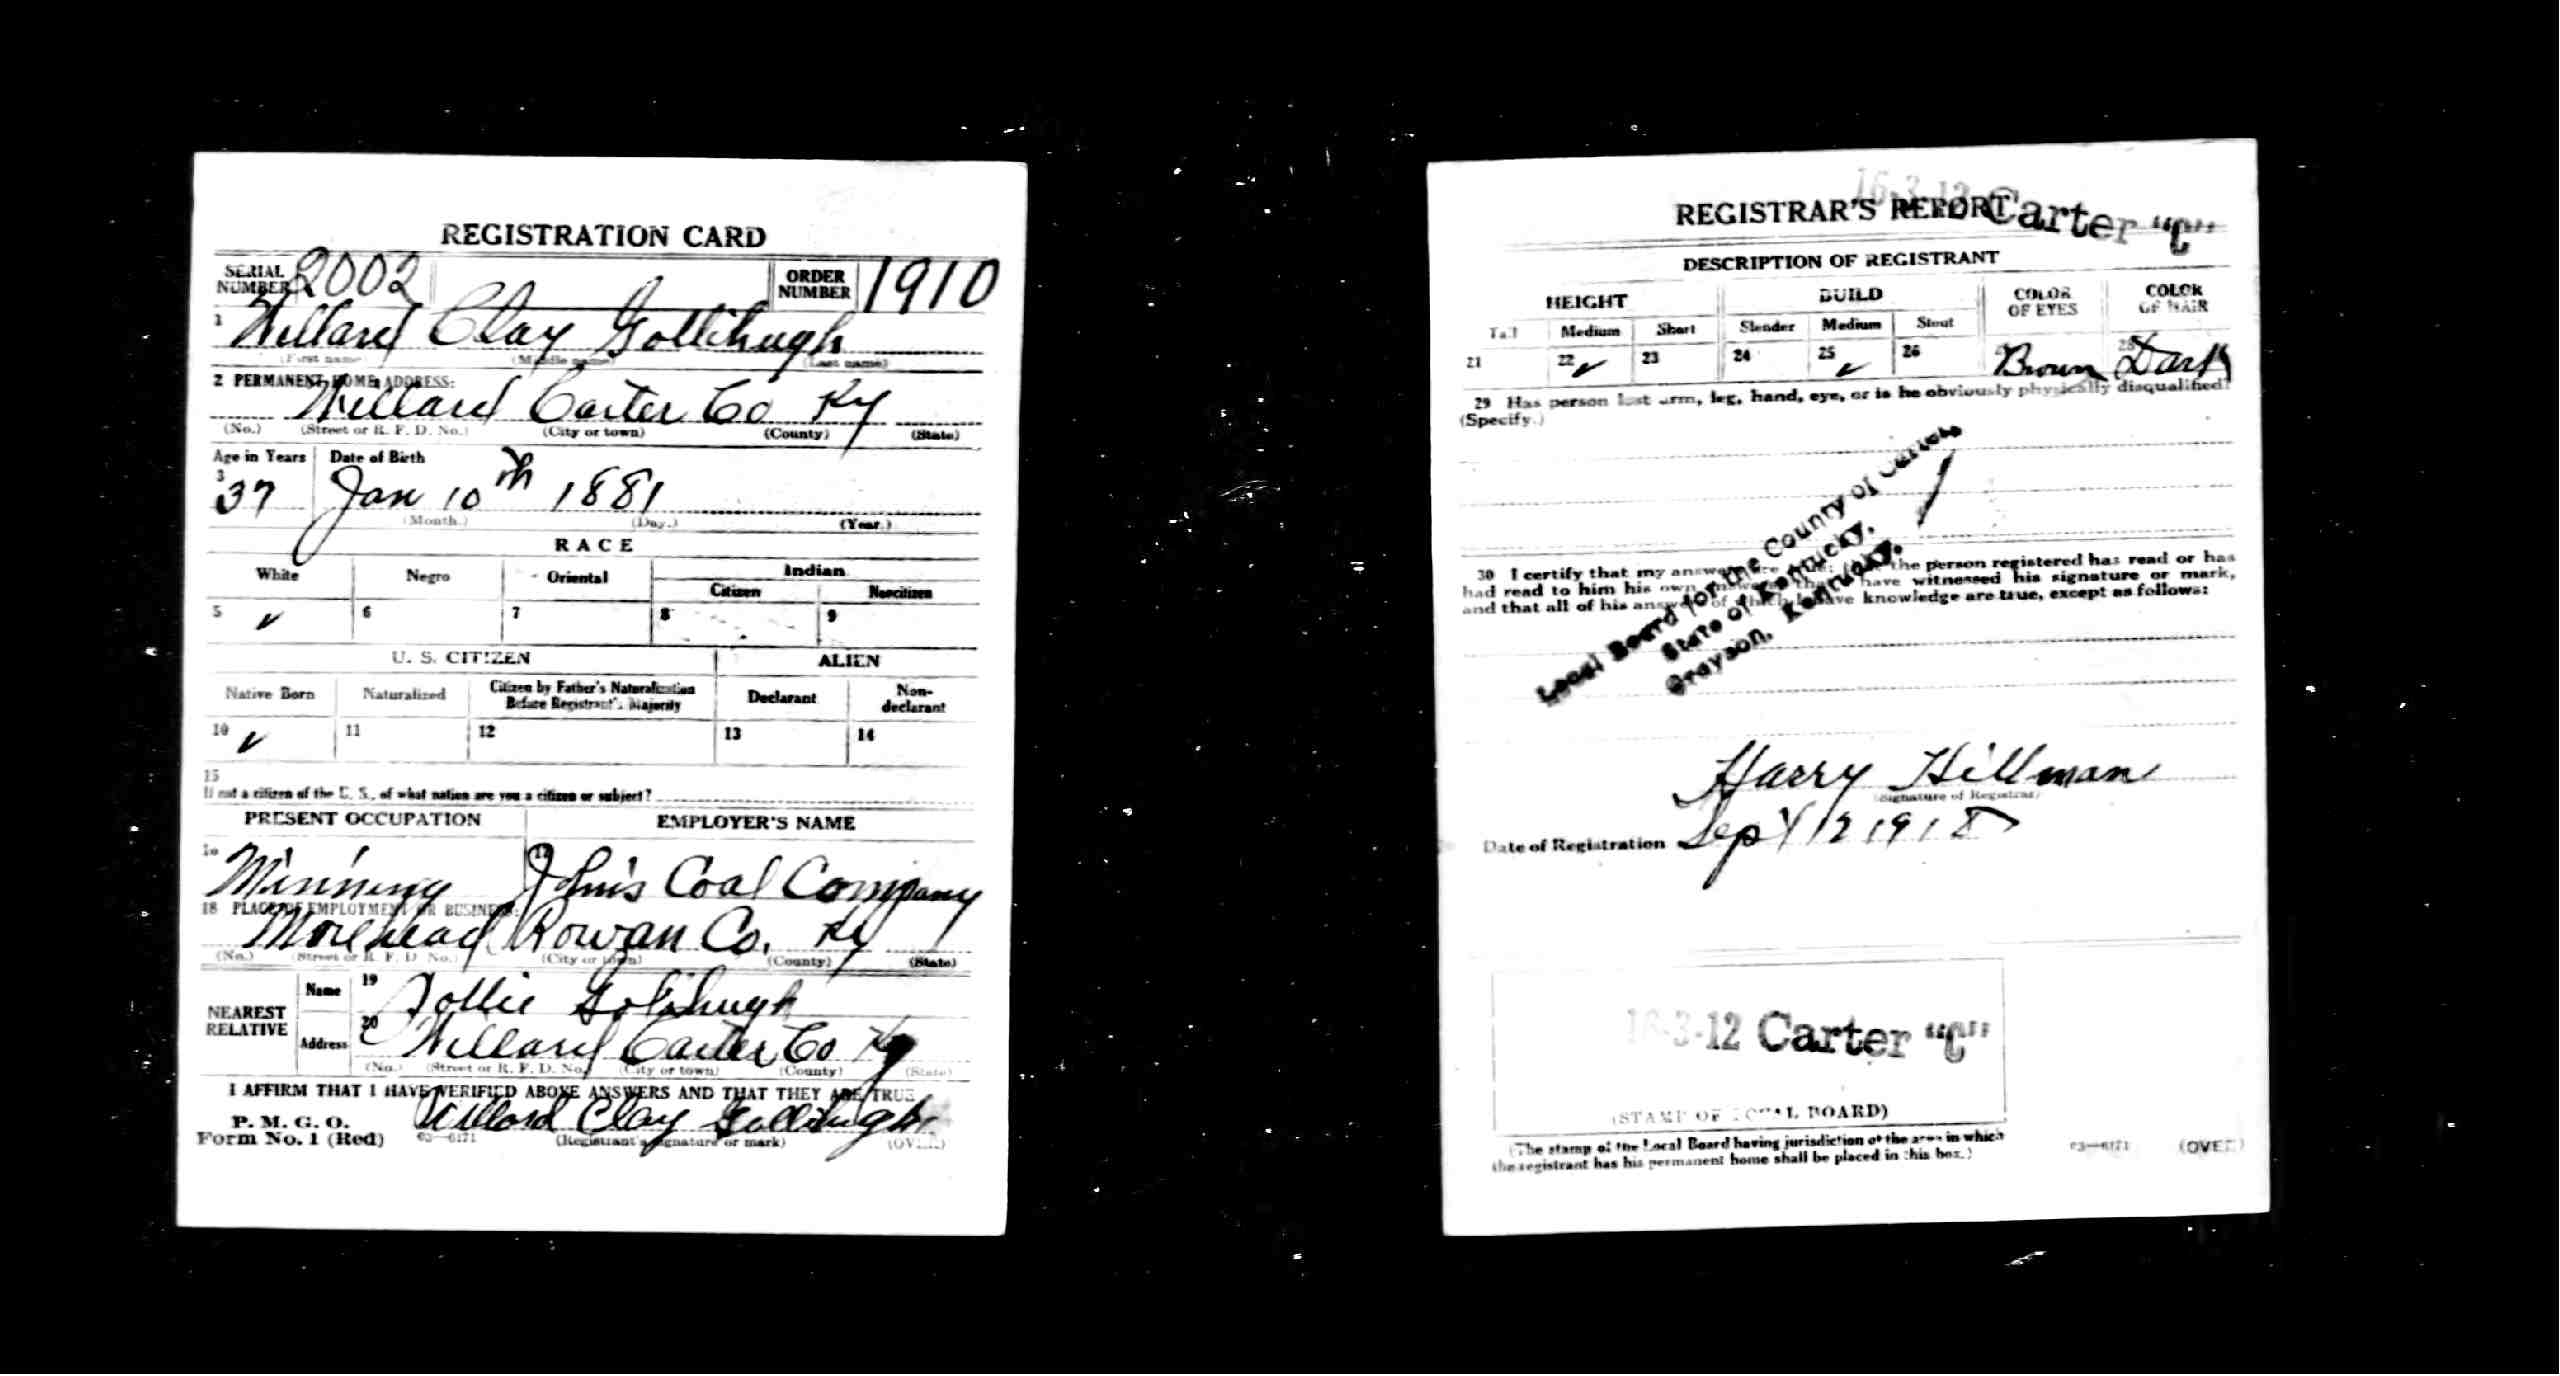 REGISTRATION CARD
SERIAL NUMBER 2002 ORDER NUMBER 1910
1 Willard Clay Gollihugh
(First name) (Middle name) (Last name)
2 PERMANENT HOME ADDRESS:
Willard Carter Co Ky
(No.) (Street or R. F. D. No.) (City or town) (County) (State)
Age in Years Date of Birth
3 37 Jan 10th 1881
(Month.) (Day.) (Year.)
RACE
White Negro Oriental Indian
Citizen Noncitizen
5 ✓ 6 7 8 9
U. S. CITIZEN ALIEN
Native Born Naturalized Citizen by Father's Naturalization Before Registrant's Majority Declarant Non-declarant
10 ✓ 11 12 13 14
15
If not a citizen of the U. S., of what nation are you a citizen or subject?
PRESENT OCCUPATION EMPLOYER'S NAME
16 Minning 17 Coal Company
18 PLACE OF EMPLOYMENT OR BUSINESS:
Morehead Rowan Co. Ky
(No.) (Street or R. F. D. No.) (City or town) (County) (State)
NEAREST RELATIVE Name 19 Gollihugh
Address 20 Willard Carter Co Ky
(No.) (Street or R. F. D. No.) (City or town) (County) (State)
I AFFIRM THAT I HAVE VERIFIED ABOVE ANSWERS AND THAT THEY ARE TRUE
P. M. G. O.
Form No. 1 (Red) 03—6171 Willard Clay Gollihugh
(Registrant's signature or mark) (OVER)
16-3-12 Carter "C"
REGISTRAR'S REPORT
DESCRIPTION OF REGISTRANT
HEIGHT BUILD COLOR OF EYES COLOR OF HAIR
Tall Medium Short Slender Medium Stout
21 22 ✓ 23 24 25 ✓ 26 Brown 28 Dark
29 Has person lost arm, leg, hand, eye, or is he obviously physically disqualified?
(Specify.)
Local Board for the County of Carter
State of Kentucky,
Grayson, Kentucky.
30 I certify that my answers are true; that the person registered has read or has
had read to him his own answers; that I have witnessed his signature or mark,
and that all of his answers of which I have knowledge are true, except as follows:
Harry Hillman
(Signature of Registrar)
Date of Registration Sept 12 1918
16-3-12 Carter "C"
(STAMP OF LOCAL BOARD)
(The stamp of the Local Board having jurisdiction of the area in which
the registrant has his permanent home shall be placed in this box.)
03—6171 (OVER)